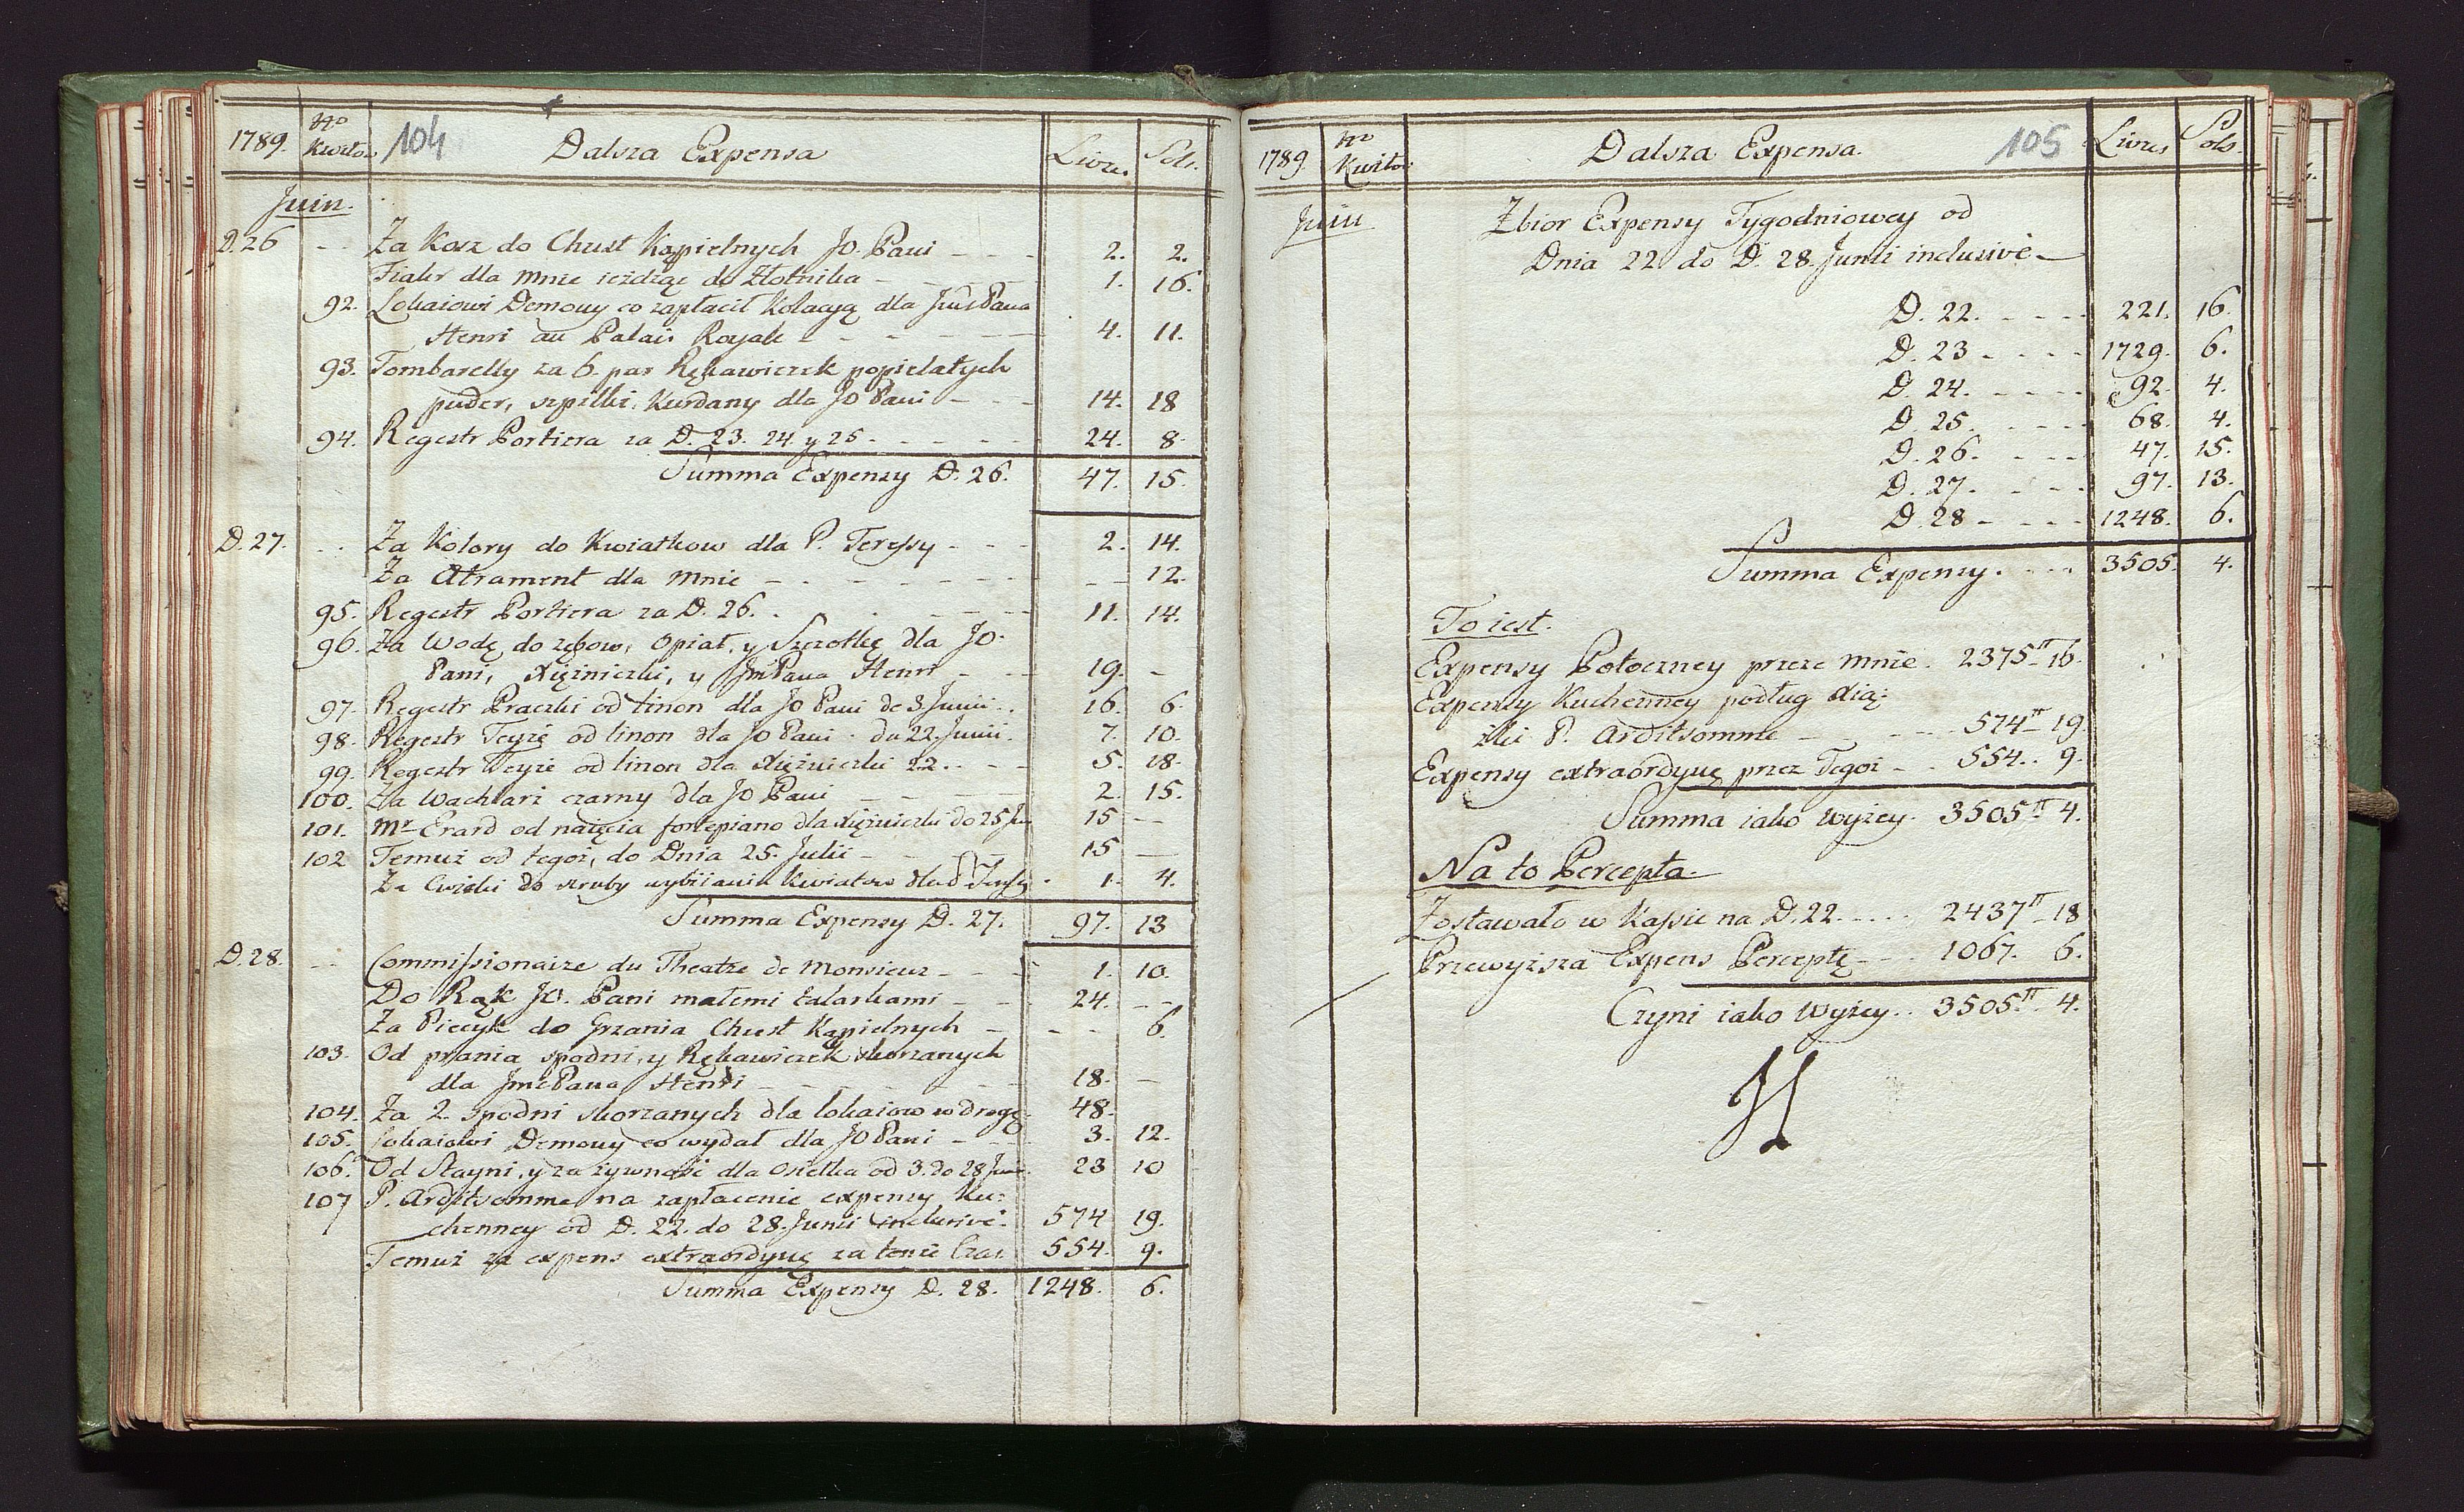 1789. No Kwitow 104 Dalsza Expensa Livre. Sols.
Juin.
D. 26 - - Za Kosz do Chust Kąpielnych JO. Pani - - - 2. 2.
Fiakr dla mnie ieżdżąc do Złotnika - - - 1. 16.
92. Lokaiowi Demouy co zapłacił Kolacyą dla JmśPana
Henri au Palais Royale - - - 4. 11.
93. Tombarelly za 6. par Rękawiczek popielatych
puder, szpilki, Kurdany dla JO Pani - - - 14. 18
94. Regestr Portiera za D. 23. 24. y 25. - - - 24. 8.
Summa Expensy D. 26. 47. 15.
D. 27. - - Za Kolory do Kwiatkow dla P. Teressy - - - 2. 14.
Za Atrament dla mnie - - - - - 12.
95. Regestr Portiera za D. 26. - - - 11. 14.
96. Za Wodę do zębow, Opiat, y Szczotkę dla JO.
Pani, Xiężniczki, y JmPana Henri - - - 19. -
97. Regestr Praczki od linon dla JO Pani de 3 Junii. . 16. 6.
98. Regestr Teyże od linon dla JO Pani. du 22. Junii. 7. 10.
99. Regestr Teyże od linon dla Xiężniczki 22. - - 5. 18.
100. Za Wachlarz czarny dla JO Pani - - - 2. 15.
101. Mr. Erard od naięcia fortepiano dla Xiężniczki do 25 Jun 15 —
102 Temuż od tegoż, do Dnia 25. Julii - - - 15 —
Za Cwieki do szruby wybiiania Kwiatow dla P Teressy. 1. 4.
Summa Expensy D. 27. 97. 13
D. 28. - - Commissionaire du Theatre de Monsieur - - - 1. 10.
Do Rąk JO. Pani małemi talarkami - - 24. - -
Za Piecyk do Grzania Chust Kąpielnych - - - 6.
103. Od prania spodni, y Rękawiczek skorzanych
dla JmcPana Henri - - - 18. —
104. Za 2. Spodni skorzanych dla lokaiow w drogę. 48.
105. Lokaiowi Demouy co wydał dla JO Pani - - 3. 12.
106. Od Stayni, y za żywność dla Osiełka od 3. do 28 Jun. 23 10
107 P. Arditsomme na zapłacenie expensy Ku:
chenney od D. 22. do 28. Junii inclusivè. 574 19.
Temuż za expens extraordynę za tenże Czas. 554. 9.
Summa Expensy D. 28. 1248. 6.
1789. No Kwitow Dalsza Expensa. 105 Livres Sols.
Juin
Zbior Expensy Tygodniowey od
Dnia 22 do D. 28. Junii inclusivè —
D. 22. - - - 221. 16.
D. 23 - - - 1729. 6.
D. 24. - - - 92. 4.
D. 25. - - - 68. 4.
D. 26. - - - 47. 15.
D. 27. - - - 97. 13.
D. 28 - - - 1248. 6.
Summa Expensy. - - - 3505. 4.
To iest.
Expensy Potoczney przeze mnie. 2375tt 16.
Expensy Kuchenney podług Xią:
żki P. Arditsomme - - - 574tt 19.
Expensy extraordynę przez Tegoż - - 554. . 9.
Summa iako wyżey. 3505tt 4.
Na to Percepta.
Zostawało w Kassie na D. 22. - - - 2437tt 18
Przewyższa Expens Perceptę - - - 1067. 6.
Czyni iako Wyżey. . 3505tt. 4.